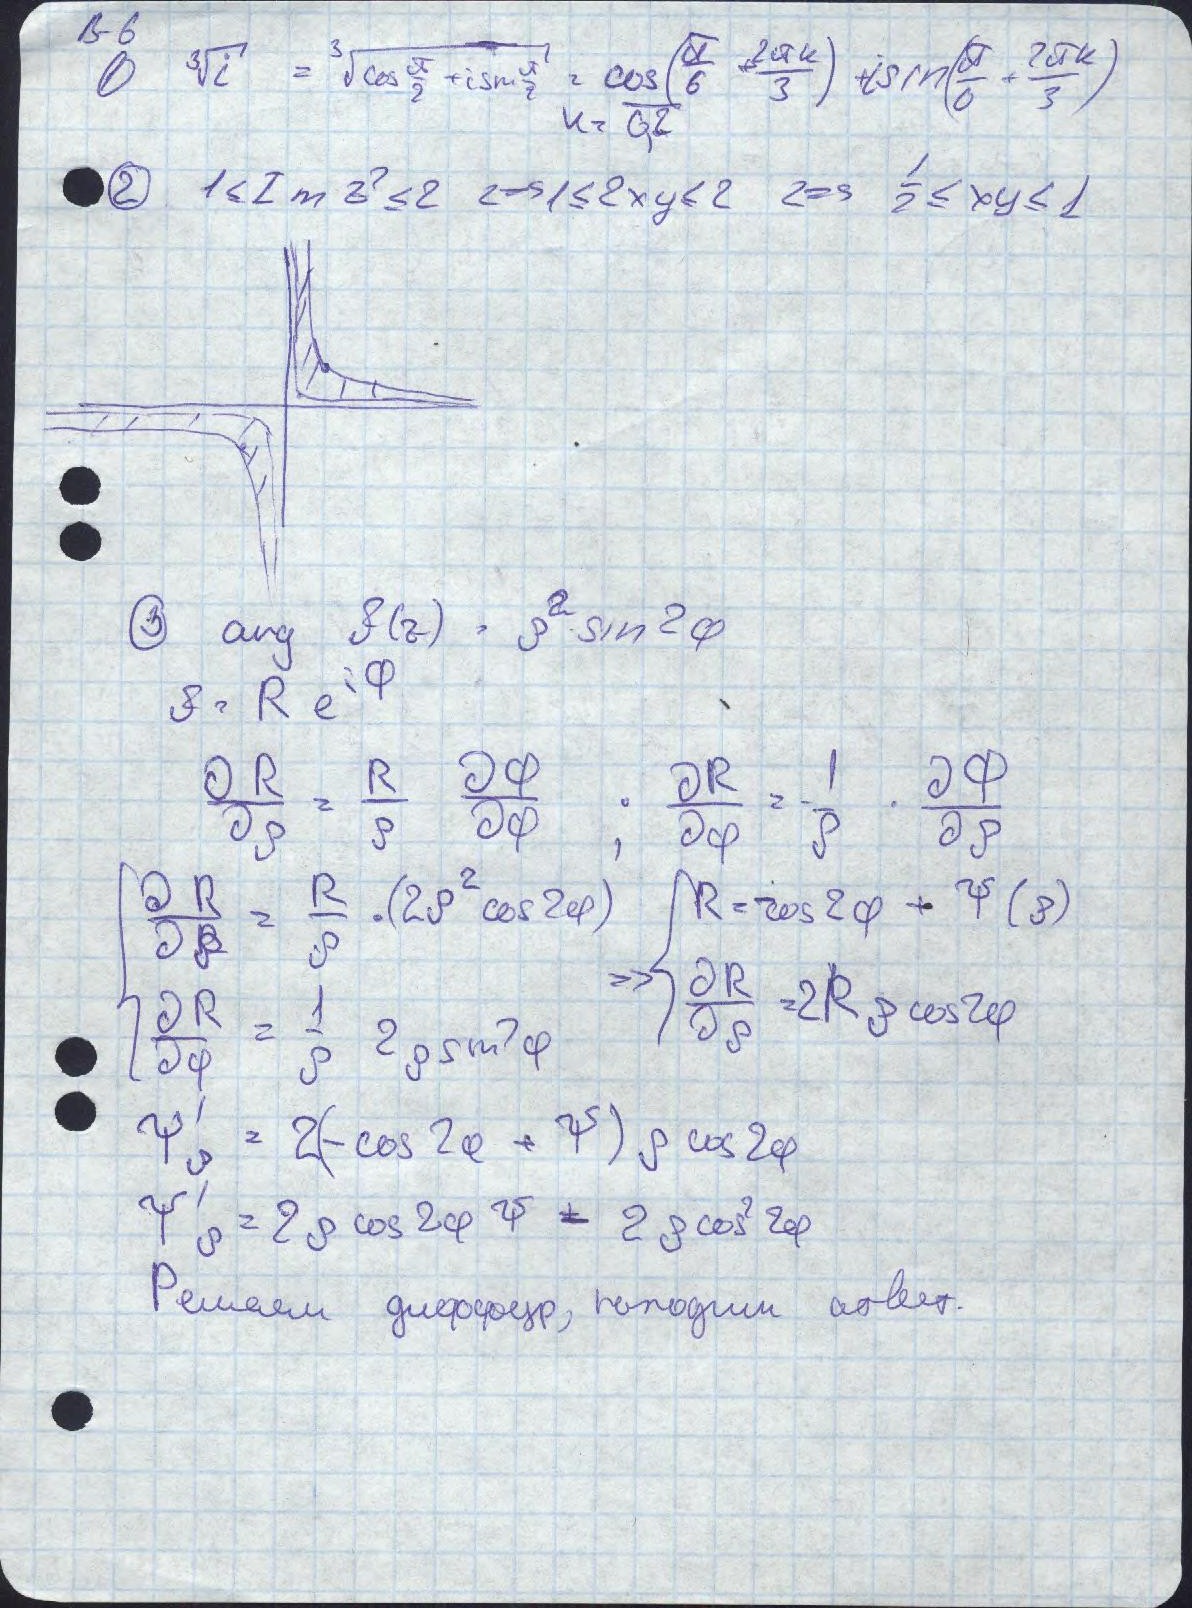 В-6
① ∛i = ∛(cos π/2 + i sin π/2) = cos(π/6 + 2πk/3) + i sin(π/6 + 2πk/3)
k = 0,2
② 1 ≤ Im z² ≤ 2 <=> 1 ≤ 2xy ≤ 2 <=> 1/2 ≤ xy ≤ 1
③ arg f(z) = ρ² sin 2φ
f = R e^{iΦ}
∂R/∂ρ = R/ρ ∂Φ/∂φ ; ∂R/∂φ = -1/ρ · ∂Φ/∂ρ
{ ∂R/∂ρ = R/ρ · (2ρ² cos 2φ)
∂R/∂φ = 1/ρ 2ρ sin 2φ
=> { R = -cos 2φ + Ψ(ρ)
∂R/∂ρ = 2Rρ cos 2φ
Ψ'ρ = 2(-cos 2φ + Ψ) ρ cos 2φ
Ψ'ρ = 2ρ cos 2φ Ψ - 2ρ cos² 2φ
Решаем диффур, находим ответ.